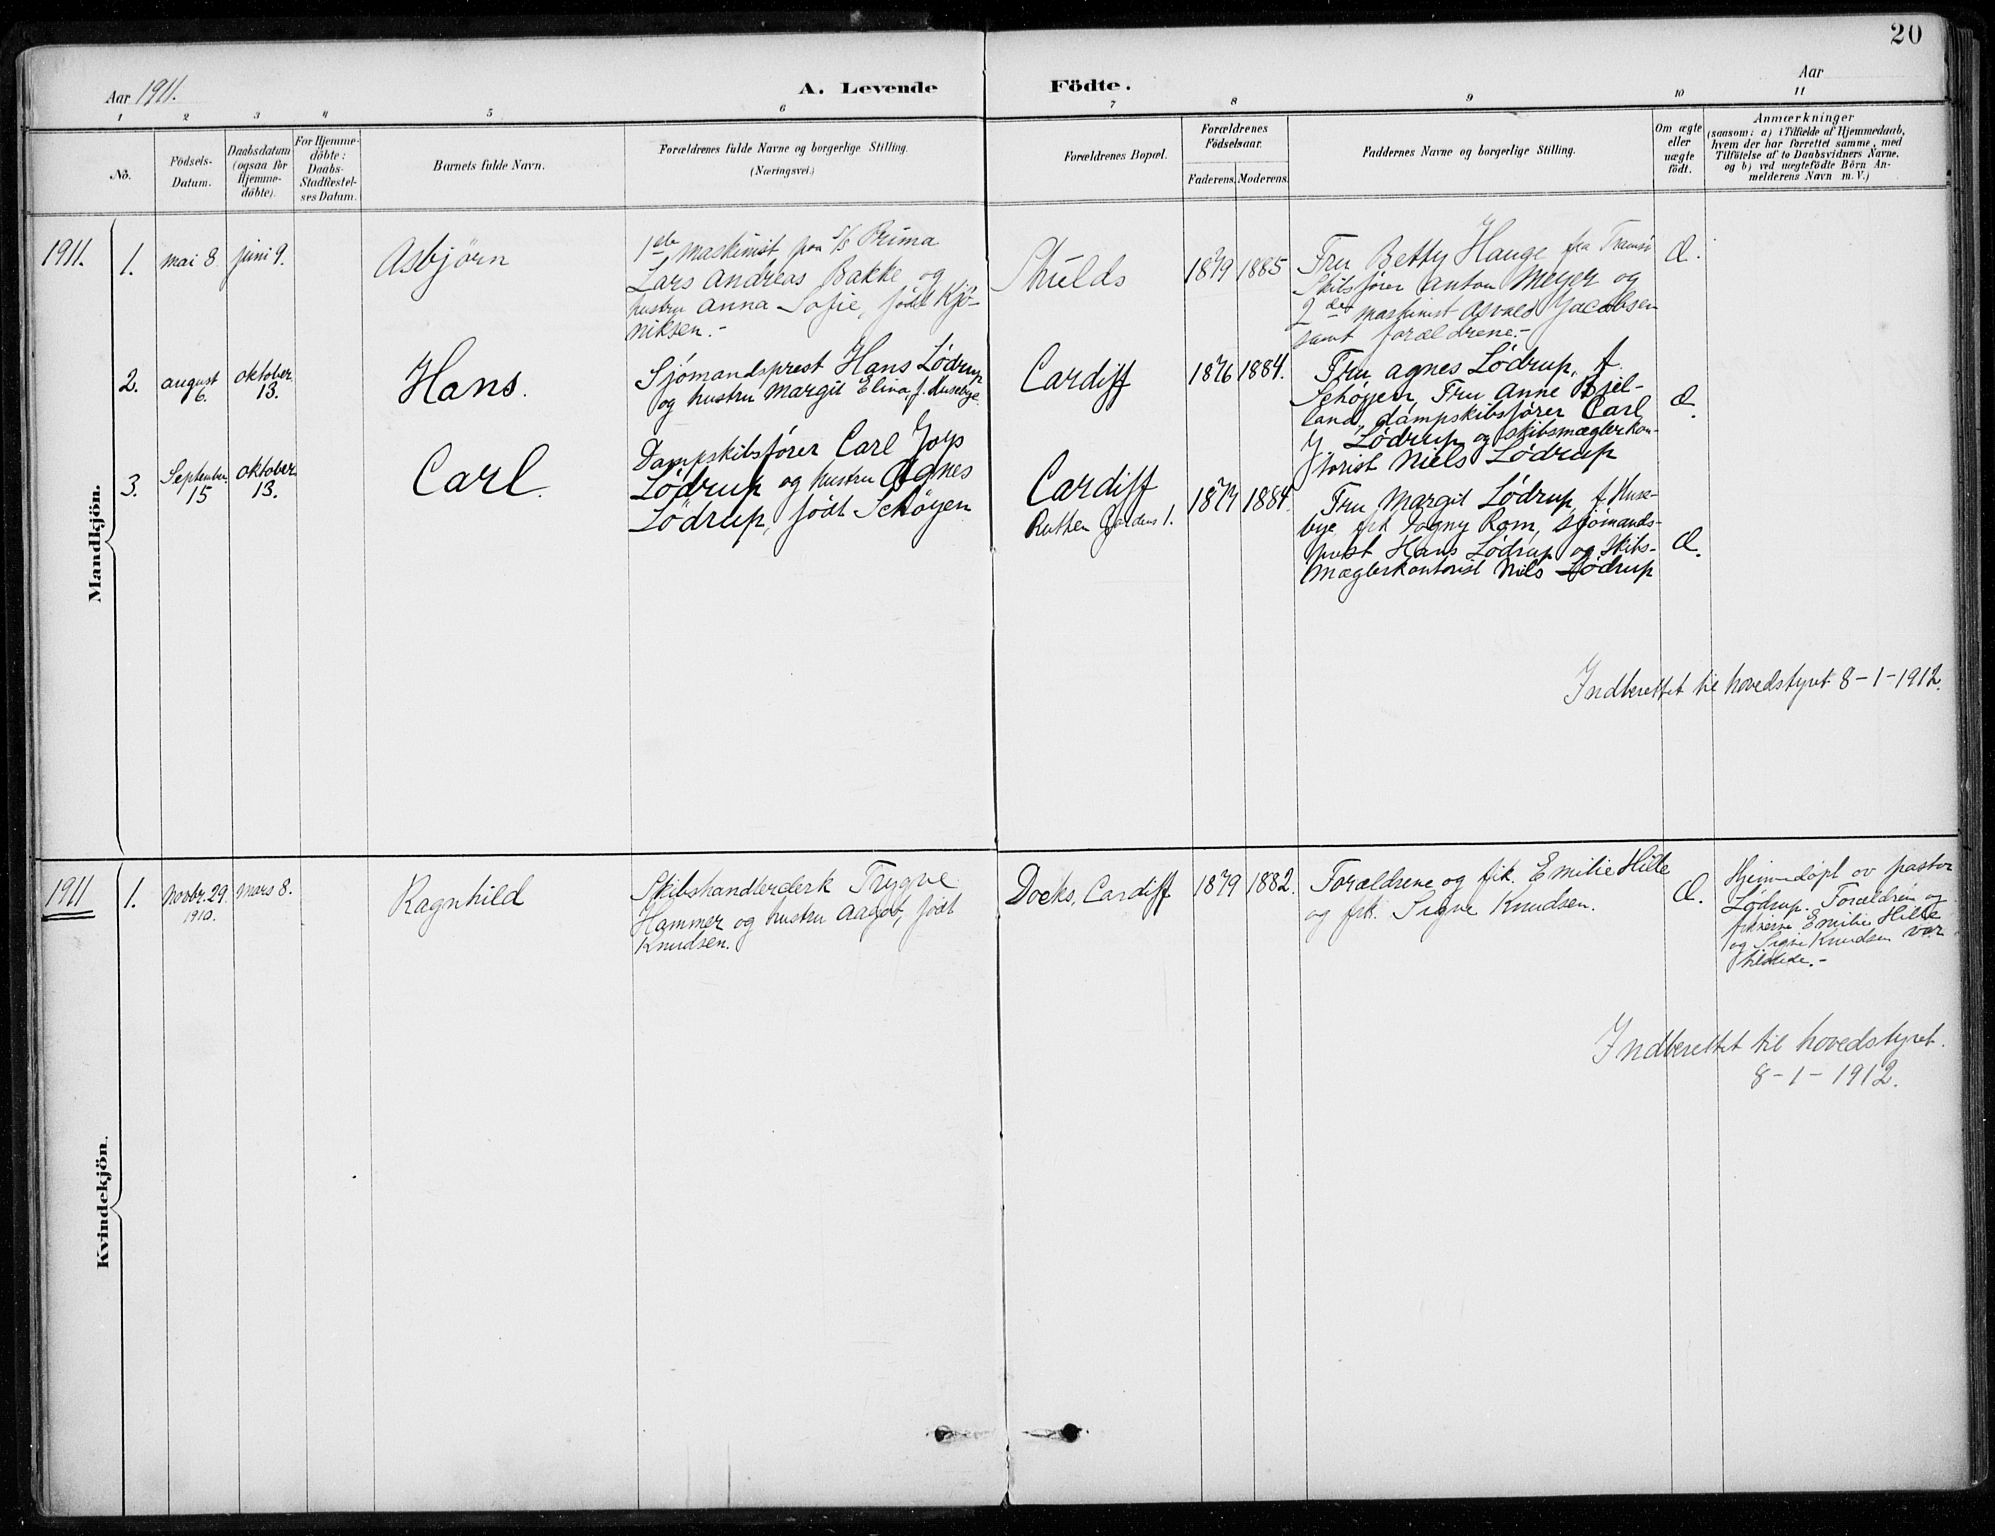 20
Aar 1911.
A. Levende Födte.
Aar
1 2 3 4 5 6 7 8 9 10 11
No.
Födsels-
Datum.
Daabsdatum
(ogsaa for
Hjemme-
döbte).
For Hjemme-
döbte:
Daabs-
Stadfæstel-
ses Datum.
Barnets fulde Navn.
Forældrenes fulde Navne og borgerlige Stilling.
(Næringsvei.)
Forældrenes Bopæl.
Forældrenes
Födselsaar.
Faderens. Moderens.
Faddernes Navne og borgerlige Stilling.
Om ægte
eller
uægte
födt.
Anmærkninger
(saasom: a) i Tilfælde af Hjemmedaab,
hvem der har forrettet samme, med
Tilföielse af to Daabsvidners Navne,
og b) ved uægtefödte Börn An-
melderens Navn m. V.)
Mandkjön.
1911.
1.
mai 8.
juni 9.
Asbjörn
1ste maskinist paa S/S Prima
Lars Andreas Bakke og
hustru Anna Sofie, født Kjö-
niksen.-
Shields
1879
1885
Fru Betty Hauge fra Tromsö
Skibsfører Anton Meyer og
2den maskinist Asvald Jacobsen
samt forældrene.-
Æ.
2.
august
6.
oktober
13.
Hans.
Sjömandsprest Hans Lödrup
og hustru Margit Elina, f. Husebye.
Cardiff
1876
1884.
Fru Agnes Lödrup, f.
Schöyen, Fru Anne Bjel-
land, dampskibsfører Carl
J. Lödrup og skibsmæglerkon-
torist Niels Lödrup
Æ.
3.
September
15
oktober
13.
Carl.
Dampskibsfører Carl
Lödrup og hustru Agnes
Lödrup, født Schöyen
Cardiff
1.
1884.
Fru Margit Lödrup, f. Huse-
bye, frk Dagny Rom, sjömands-
prest Hans Lödrup og Skibs-
mæglerkontorist Niels Lödrup
Æ.
Indberettet til hovedstyret 8-1-1912.
Kvindekjön.
1911
1.
Novbr. 29.
1910.
Mars 8.
Ragnhild
Skibshandlerclerk Trygve
Hammer og hustru Aagot, født
Knudsen.
Docks, Cardiff
1879
1882.
Forældrene og frk. Emilie Hille
og frk. Signe Knudsen.
Æ.
Hjemmedøpt av pastor
Lødrup. Forældren og
frknerne Emilie Hille
og Signe Knudsen var
tilstede.-
Indberettet til hovedstyret.
8-1-1912.